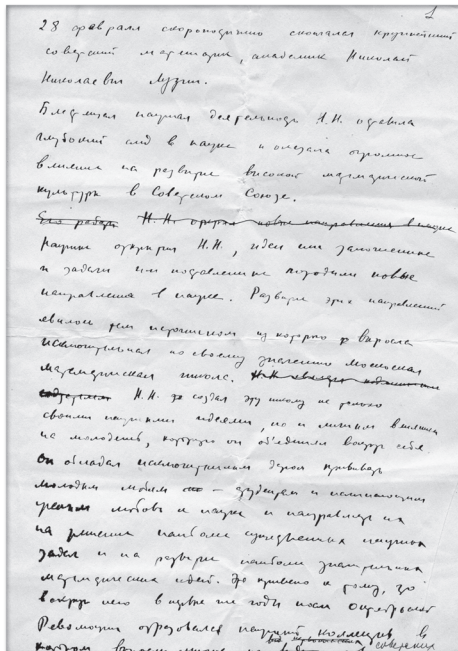 1
28 февраля скоропостижно скончался крупнейший
советский математик, академик Николай
Николаевич Лузин.
Блестящая научная деятельность Н.Н. оставила
глубокий след в науке и оказала огромное
влияние на развитие высокой математической
культуры в Советском Союзе.
Его работы Н.Н. открыл новые направления в науке
Научные открытия Н.Н., идеи им заложенные
и задачи им поставленные породили новые
направления в науке. Развитие этих направлений
явилось тем источником из которого выросла
исключительная по своему значению московская
математическая школа.
Н.Н. создал эту школу не только
своими научными идеями, но и личным влиянием
на молодежь, которую он объединял вокруг себя.
Он обладал исключительным даром прививать
молодым людям — студентам и начинающим
ученым любовь к науке и направлять их
на решение наиболее существенных научных
задач и на развитие наиболее значительных
математических идей. Это привело к тому, что
вокруг него в первые же годы после Октябрьской
Революции образовался научный коллектив в
котором советских